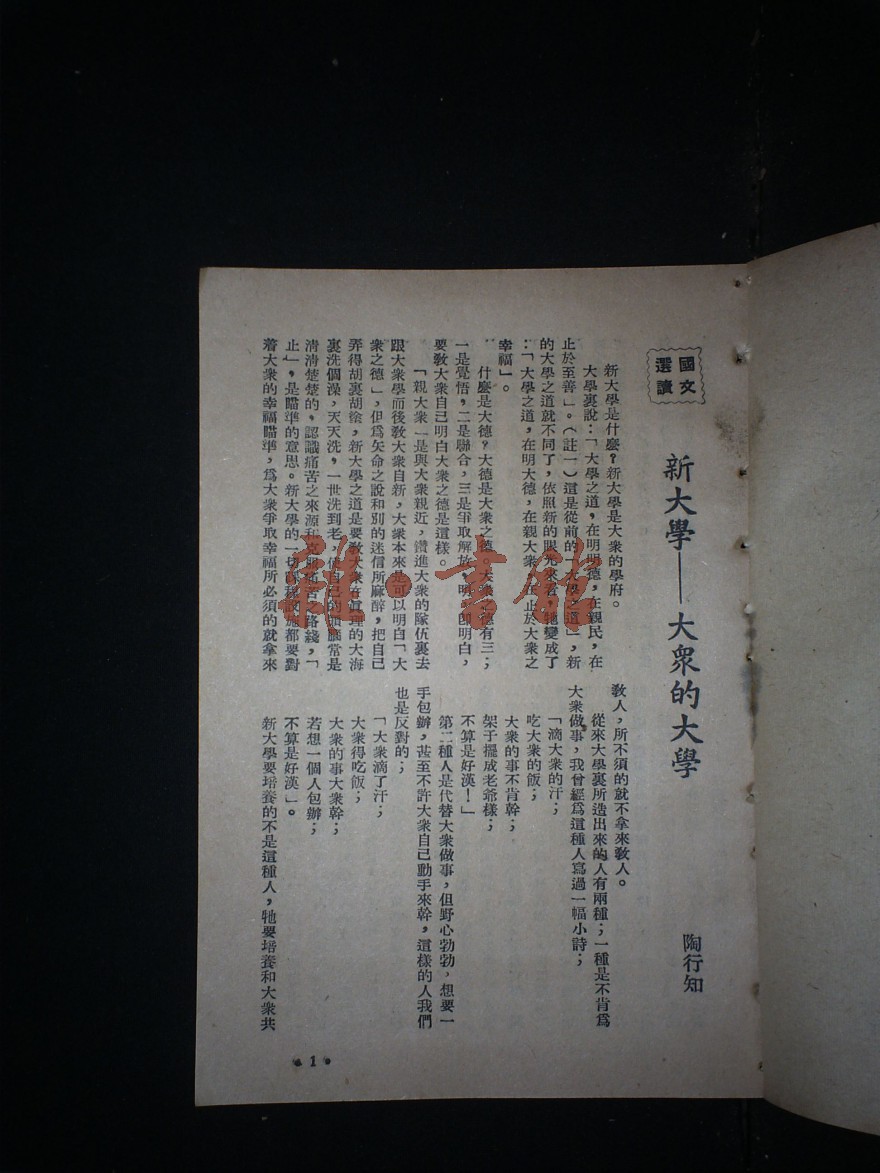 國文
選讀
新大學——大衆的大學
陶行知
新大學是什麼?新大學是大衆的學府。
大學裏說:「大學之道,在明明德,在親民,在
止於至善」。(註一)這是從前的「大學之道」,新
的大學之道就不同了,依照新的眼光來看,牠變成了
:「大學之道,在明大德,在親大衆,在止於大衆之
幸福」。
什麼是大德?大德是大衆之德,大衆之德有三;
一是覺悟,二是聯合,三是爭取解放,明,卽明白,
要教大衆自己明白大衆之德是這樣。
「親大衆」是與大衆親近,鑽進大衆的隊伍裏去
跟大衆學而後教大衆自新,大衆本來是可以明白「大
衆之德」,但爲矢命之說和別的迷信所麻醉,把自己
弄得胡裏胡塗,新大學之道是要教大衆在眞理的大海
裏洗個澡,天天洗,一世洗到老,使自己的頭腦常是
清清楚楚的,認識痛苦之來源和克服痛苦之路綫,「
止」,是瞄準的意思。新大學的一切課程設施都要對
着大衆的幸福瞄準,爲大衆爭取幸福所必須的就拿來
教人,所不須的就不拿來教人。
從來大學裏所造出來的人有兩種;一種是不肯爲
大衆做事,我曾經爲這種人寫過一幅小詩;
「滴大衆的汗;
吃大衆的飯;
大衆的事不肯幹;
架子擺成老爺樣;
不算是好漢!」
第二種人是代替大衆做事,但野心勃勃,想要一
手包辦,甚至不許大衆自己動手來幹,這樣的人我們
也是反對的;
「大衆滴了汗;
大衆得吃飯;
大衆的事大衆幹;
若想一個人包辦;
不算是好漢」。
新大學要培養的不是這種人,牠要培養和大衆共
1
雅·書館